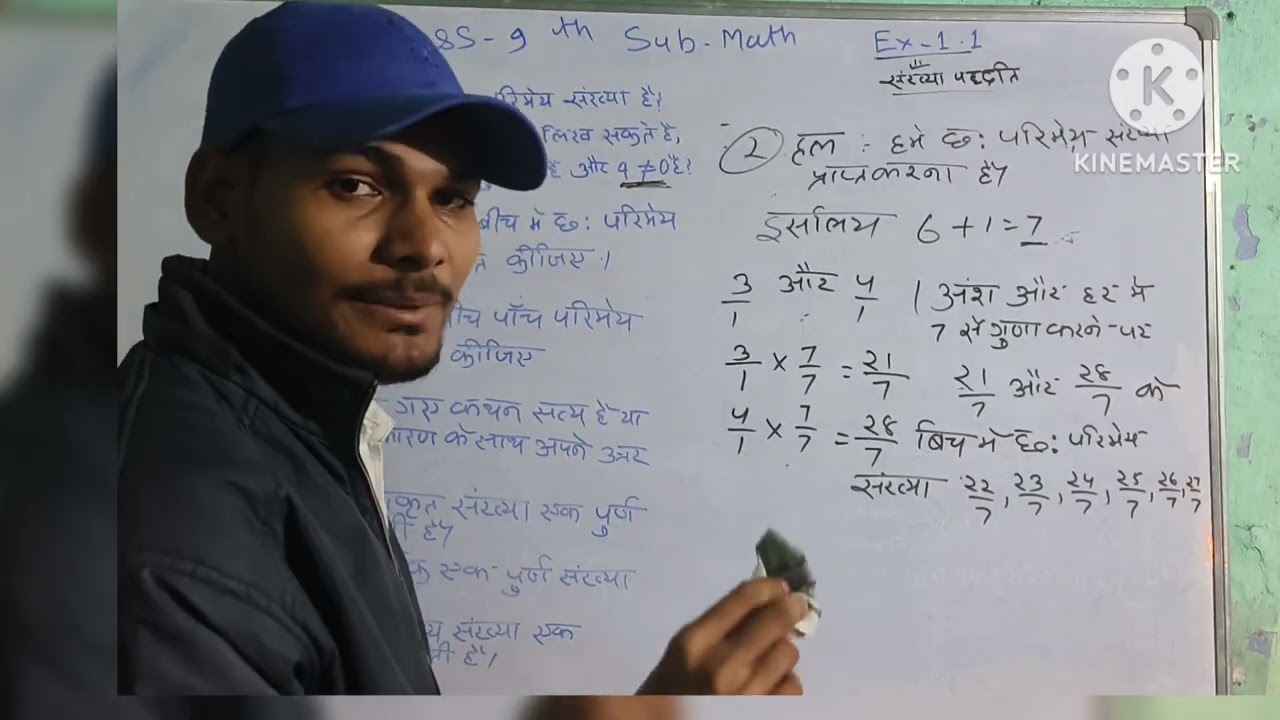 SS-9th Sub-Math Ex-1.1
संख्या पद्धति
संख्या है?
लिख सकते है,
है और q ≠ 0 है?
बीच में छ: परिमेय
कीजिए।
पाँच परिमेय
कीजिए
गए कथन सत्य है या
कारण के साथ अपने उत्तर
संख्या एक पुर्ण
है।
एक पुर्ण संख्या
संख्या एक
है।
② हल : हमे छ: परिमेय संख्या
प्राप्त करना है।
इसलिय 6+1=7
3/1 और 4/1 | अंश और हर मे
7 से गुणा करने पर
3/1 × 7/7 = 21/7 21/7 और 28/7 के
4/1 × 7/7 = 28/7 बिच मे छ: परिमेय
संख्या 22/7, 23/7, 24/7, 25/7, 26/7, 27/7
K
KINEMASTER